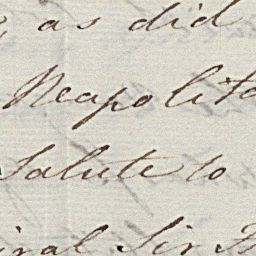 as did
Neapolita
Salute to
iral Sir